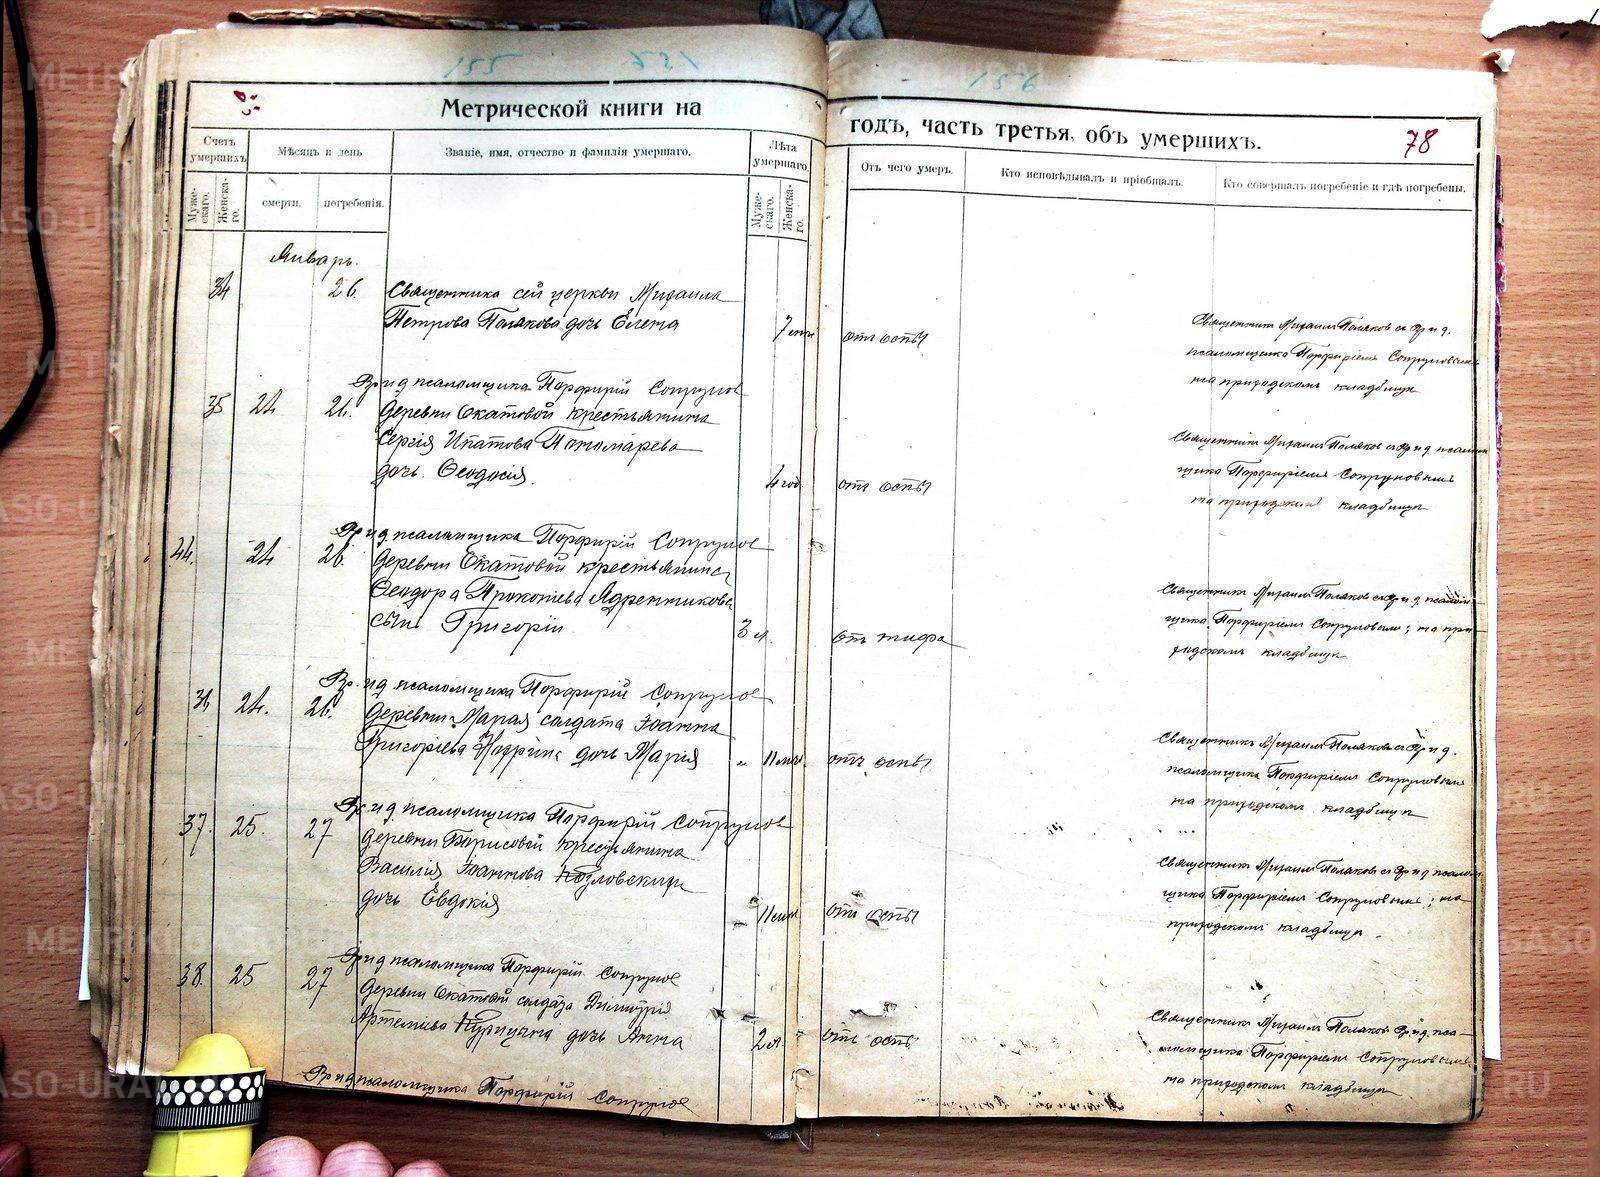 155 231
156
Метрической книги на
годъ, часть третья, объ умершихъ.
78
Счетъ умершихъ.
Мѣсяцъ и день
Званіе, имя, отчество и фамилія умершаго.
Лѣта умершаго.
Отъ чего умеръ.
Кто исповѣдывалъ и пріобщалъ.
Кто совершалъ погребеніе и гдѣ погребены.
Муже-скаго.
Женска-го.
смерти.
погребенія.
Муже-скаго.
Женска-го.
Январь.
34 26. Священника сей церкви Михаила
Петрова Полякова дочь Елена 7 отъ оспы
Священникъ Михаилъ Поляковъ съ Вр. и д.
псаломщика Порфиріемъ Сопруновымъ
на приходскомъ кладбищѣ
Вр и д псаломщика Порфирій Сопруновъ
35 24 26. Деревни Скатовой крестьянина
Сергія Ипатова Пономарева
дочь Ѳеодосія. 4 год. отъ оспы
Священникъ Михаилъ Поляковъ съ Вр и д. псалом
щика Порфиріемъ Сопруновымъ
на приходскомъ кладбищѣ
Вр и д псаломщика Порфирій Сопруновъ
44. 24 26. Деревни Скатовой крестьянина
Ѳеодора Прокопіева Ядренникова
сынъ Григорій 3 л. отъ тифа
Священникъ Михаилъ Поляковъ съ Вр и д. псалом
щика Порфиріемъ Сопруновымъ; на при
ходскомъ кладбищѣ
Вр. и д псаломщика Порфирій Сопруновъ
24. 26. Деревни Марай солдата Іоанна
Григоріева дочь Марія " 11 мѣс отъ оспы
Священникъ Михаилъ Поляковъ съ Вр и д.
псаломщика Порфиріемъ Сопруновымъ
на приходскомъ кладбищѣ
Вр. и д псаломщика Порфирій Сопруновъ
37. 25. 27 Деревни Борисовой крестьянина
Василія Іоаннова Козловскихъ
дочь Евдокія 11 мѣс отъ оспы
Священникъ Михаилъ Поляковъ съ Вр и д псалом
щика Порфиріемъ Сопруновымъ; на
приходскомъ кладбищѣ.
Вр и д псаломщика Порфирій Сопруновъ
38. 25 27 Деревни Скатовой солдата Димитрія
Артеміева Курицына дочь Анна 2 л. отъ оспы
Священникъ Михаилъ Поляковъ Вр. и д. пса-
ломщика Порфиріемъ Сопруновымъ
на приходскомъ кладбищѣ
Вр и д псаломщика Порфирій Сопруновъ